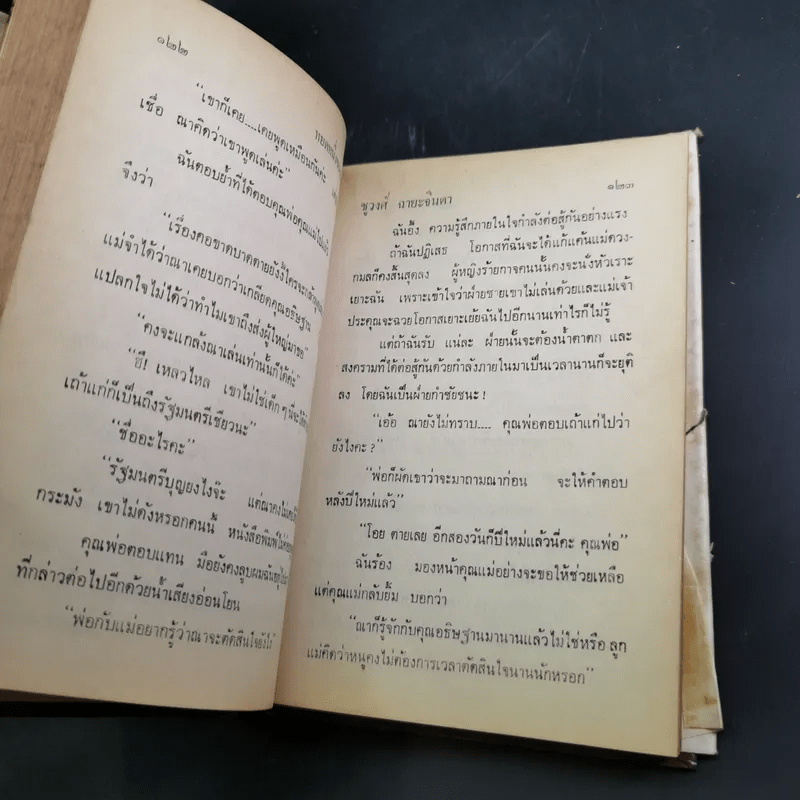 ๑๒๒
“เขาก็เคย....เคยพูดเหมือนกันค่ะ
เชื่อ ณาคิดว่าเขาพูดเล่นค่ะ”
ฉันตอบย้ำที่ได้ตอบคุณพ่อคุณแม่ไปแล้ว
จึงว่า
“เรื่องคอขาดบาดตายยังงี้ใครจะ
แม่จำได้ว่าณาเคยบอกว่าเกลียดคุณอธิษฐาน
แปลกใจไม่ได้ว่าทำไมเขาถึงส่งผู้ใหญ่มาขอ”
“คงจะแกล้งณาเล่นเท่านั้นก็ได้ค่ะ”
“ฮึ! เหลวไหล เขาไม่ใช่เด็ก ๆ นี่จะ
เถ้าแก่ก็เป็นถึงรัฐมนตรีเชียวนะ”
“ชื่ออะไรคะ”
“รัฐมนตรีบุญยงไงจ๊ะ แต่ณาคงไม่
กระมัง เขาไม่ดังหรอกคนนี้ หนังสือพิมพ์ไม่
คุณพ่อตอบแทน มือยังคงลูบผมฉัน
ที่กล่าวต่อไปอีกด้วยน้ำเสียงอ่อนโยน
“พ่อกับแม่อยากรู้ว่าณาจะตัดสินใจยังไง
ชูวงศ์ ฉายะจินดา
๑๒๓
ฉันอึ้ง ความรู้สึกภายในใจกำลังต่อสู้กันอย่างแรง
ถ้าฉันปฏิเสธ โอกาสที่ฉันจะได้แก้แค้นแม่ดวง-
กมลก็คงสิ้นสุดลง ผู้หญิงร้ายกาจคนนั้นคงจะนั่งหัวเราะ
เยาะฉัน เพราะเข้าใจว่าฝ่ายชายเขาไม่เล่นด้วยและแม่เจ้า
ประคุณจะฉวยโอกาสเยาะเย้ยฉันไปอีกนานเท่าไรก็ไม่รู้
แต่ถ้าฉันรับ แน่ละ ฝ่ายนั้นจะต้องน้ำตาตก และ
สงครามที่ได้ต่อสู้กันด้วยกำลังภายในมาเป็นเวลานานก็จะยุติ
ลง โดยฉันเป็นฝ่ายกำชัยชนะ!
“เอ้อ ณายังไม่ทราบ.... คุณพ่อตอบเถ้าแก่ไปว่า
ยังไงคะ?”
“พ่อก็ผัดเขาว่าจะมาถามณาก่อน จะให้คำตอบ
หลังปีใหม่แล้ว”
“โอย ตายเลย อีกสองวันก็ปีใหม่แล้วนี่คะ คุณพ่อ”
ฉันร้อง มองหน้าคุณแม่อย่างจะขอให้ช่วยเหลือ
แต่คุณแม่กลับยิ้ม บอกว่า
“ณาก็รู้จักกับคุณอธิษฐานมานานแล้วไม่ใช่หรือ ลูก
แม่คิดว่าหนูคงไม่ต้องการเวลาตัดสินใจนานนักหรอก”